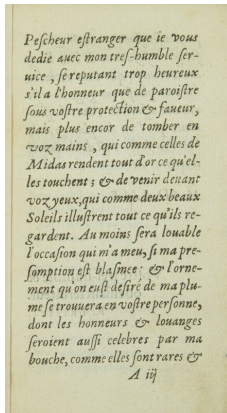 Peſcheur eſtranger que ie vous
dedie auec mon tres-humble ſer-
uice , ſe reputant trop heureux
s'il a l'honneur que de paroiſtre
ſous voſtre protection & faueur,
mais plus encor de tomber en
voz mains , qui comme celles de
Midas rendent tout d'or ce qu'el-
les touchent ; & de venir deuant
voz yeux, qui comme deux beaux
Soleils illuſtrent tout ce qu'ils re-
gardent. Au moins ſera louable
l'occaſion qui m'a meu, ſi ma pre-
ſomption eſt blaſmee ; & l'orne-
ment qu'on euſt deſiré de ma plu-
me ſe trouuera en voſtre perſonne,
dont les honneurs & louanges
ſeroient auſſi celebres par ma
bouche, comme elles ſont rares &
A iij